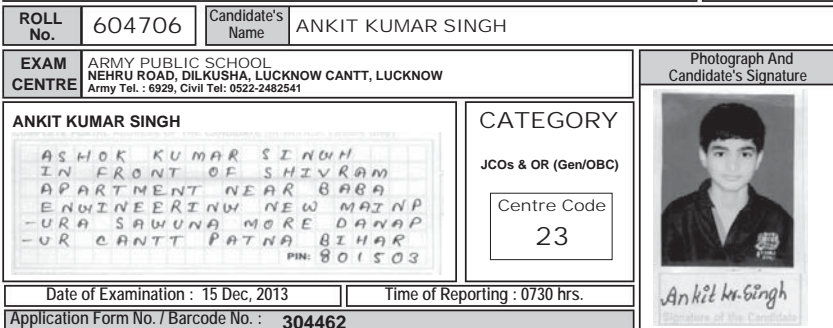 ROLL No. 604706 Candidate's Name ANKIT KUMAR SINGH
EXAM CENTRE ARMY PUBLIC SCHOOL
NEHRU ROAD, DILKUSHA, LUCKNOW CANTT, LUCKNOW
Army Tel. : 6929, Civil Tel: 0522-2482541
Photograph And
Candidate's Signature
ANKIT KUMAR SINGH
ASHOK KUMAR SINWH
IN FRONT OF SHIVRAM
APARTMENT NEAR BABA
ENWINEERINW NEW MAINP
-URA SAWUNA MORE DANAP
-UR CANTT PATNA BIHAR
PIN: 801503
CATEGORY
JCOs & OR (Gen/OBC)
Centre Code
23
Ankit kr. Singh
Signature of the Candidate
Date of Examination : 15 Dec, 2013
Time of Reporting : 0730 hrs.
Application Form No. / Barcode No. : 304462